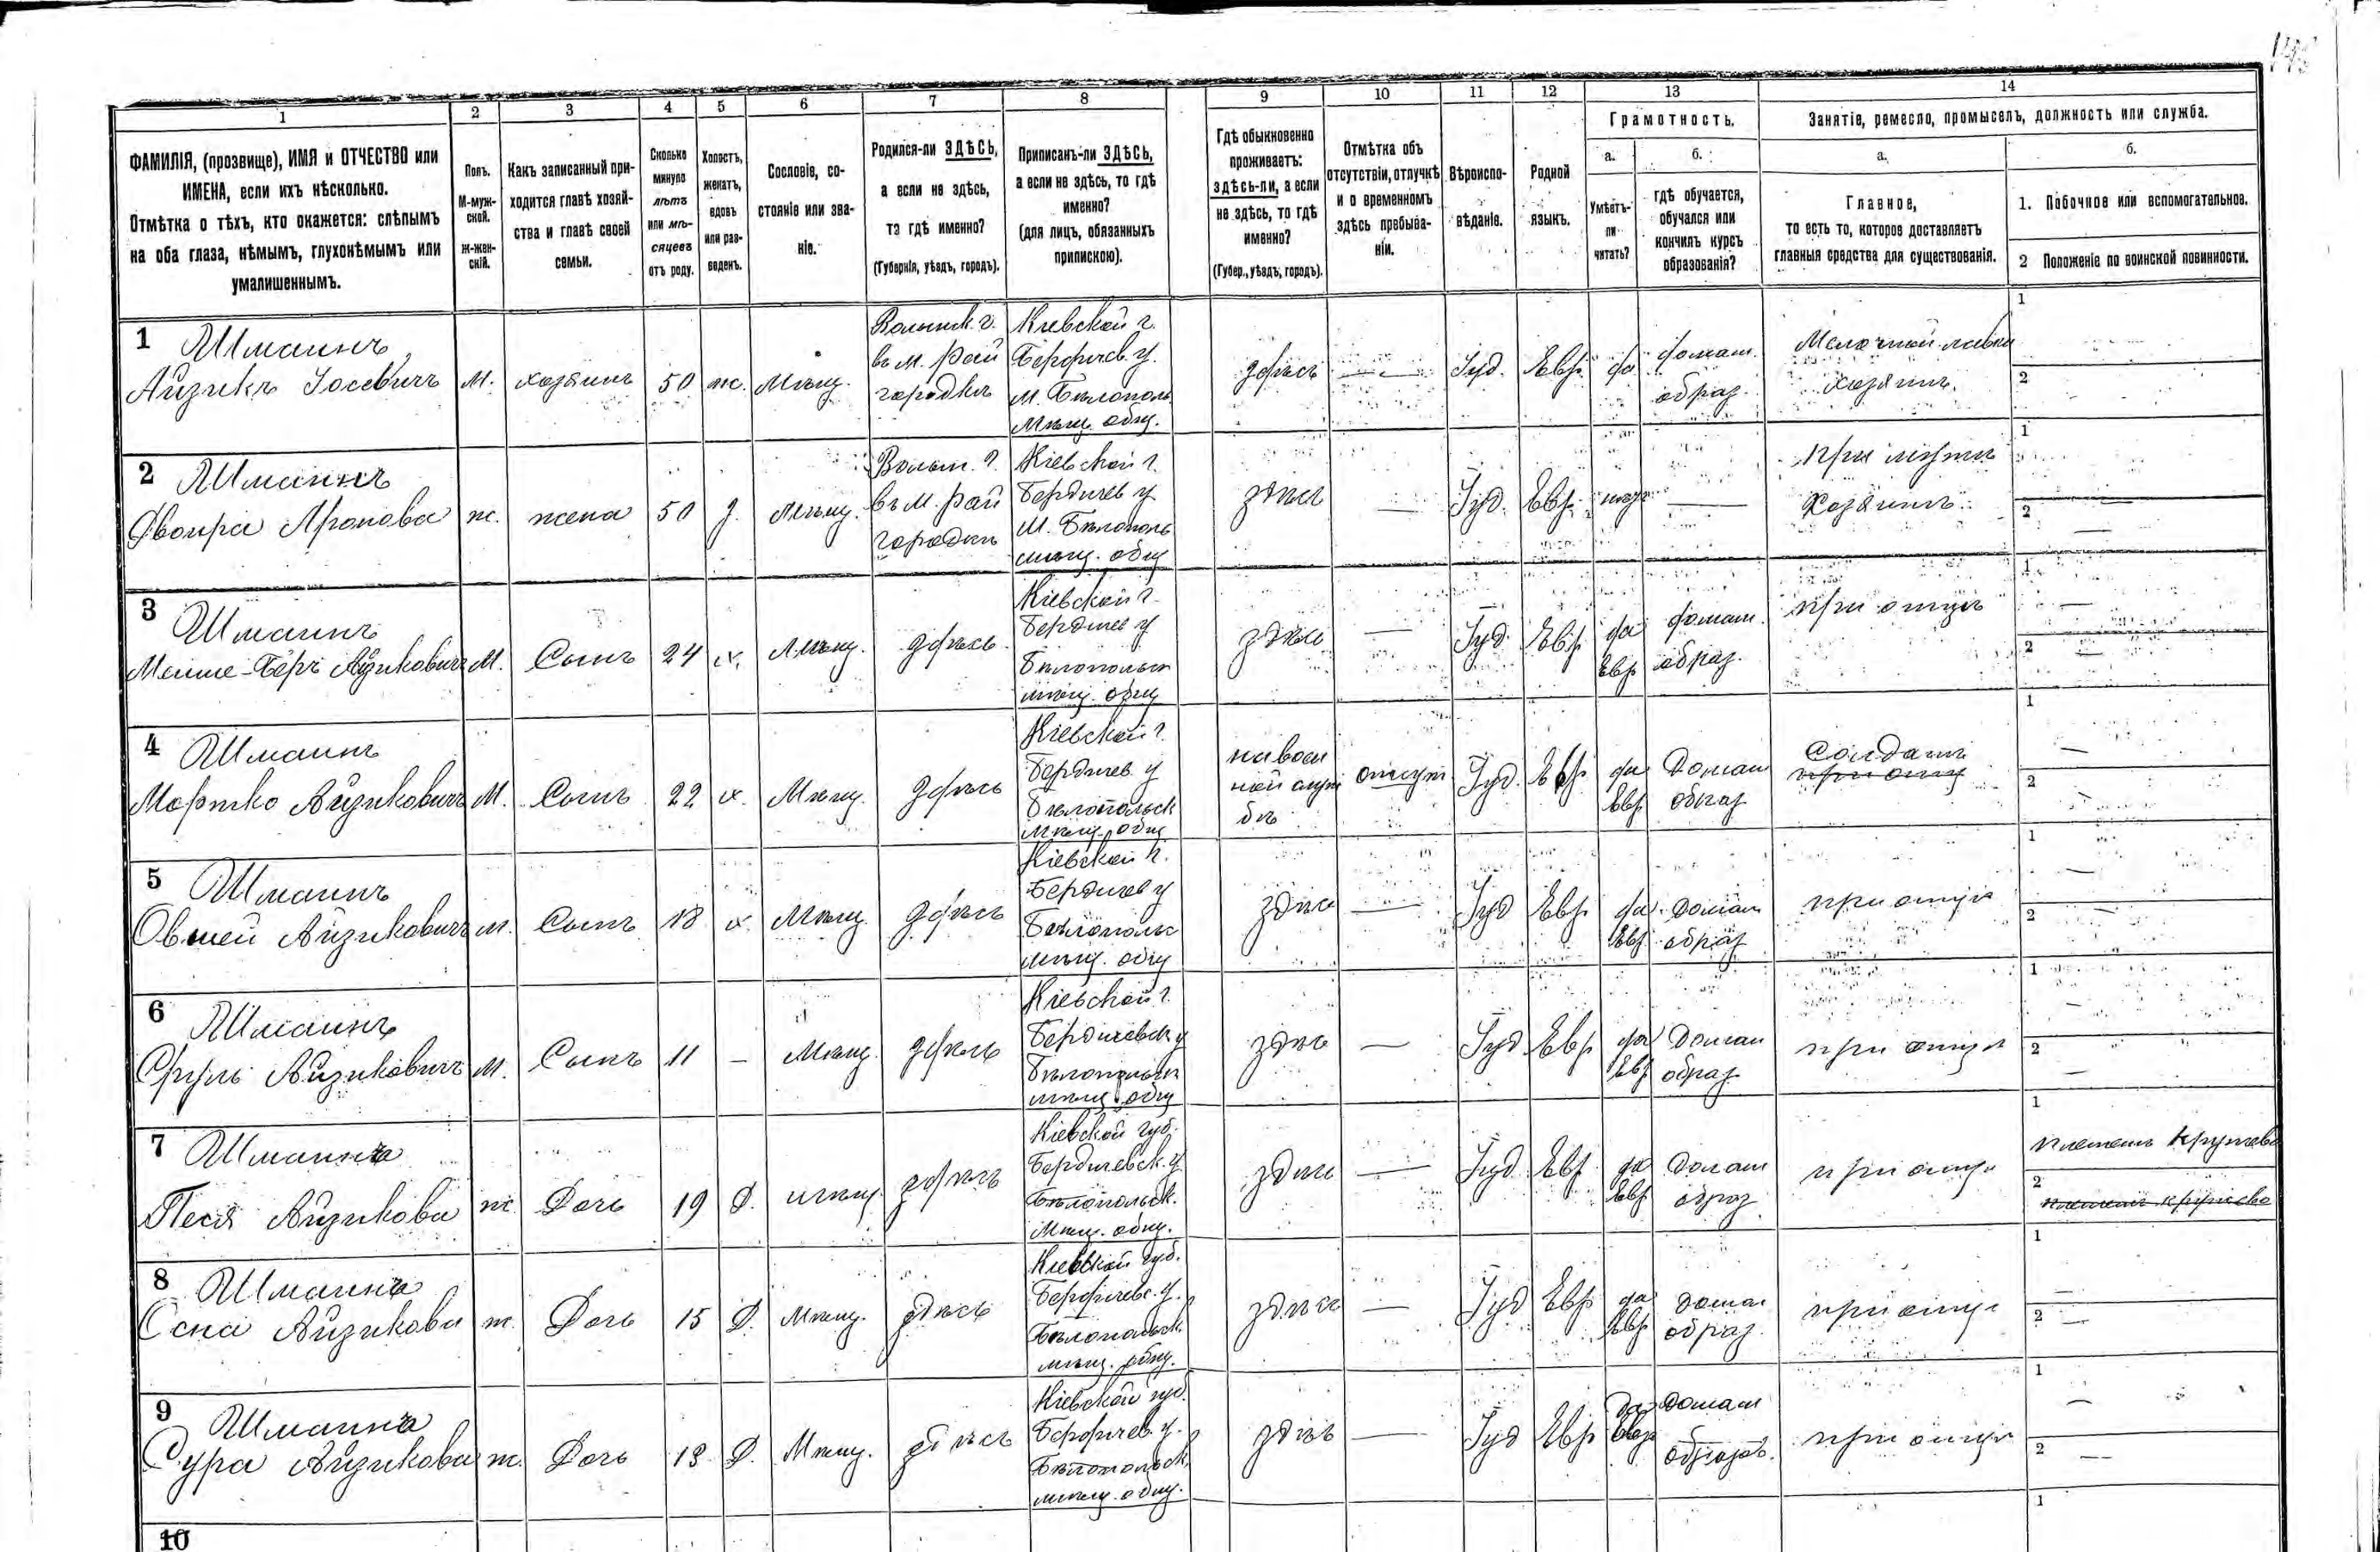 1
2
3
4
5
6
7
8
9
10
11
12
13
14
ФАМИЛІЯ, (прозвище), ИМЯ и ОТЧЕСТВО или
ИМЕНА, если ихъ нѣсколько.
Отмѣтка о тѣхъ, кто окажется: слѣпымъ
на оба глаза, нѣмымъ, глухонѣмымъ или
умалишеннымъ.
Полъ.
М-муж-
ской.
Ж-жен-
скій.
Какъ записанный при-
ходится главѣ хозяй-
ства и главѣ своей
семьи.
Сколько
минуло
лѣтъ
или мѣ-
сяцевъ
отъ роду.
Холостъ,
женатъ,
вдовъ
или раз-
веденъ.
Сословіе, со-
стояніе или зва-
ніе.
Родился-ли ЗДѢСЬ,
а если не здѣсь,
то гдѣ именно?
(Губернія, уѣздъ, городъ).
Приписанъ-ли ЗДѢСЬ,
а если не здѣсь, то гдѣ
именно?
(для лицъ, обязанныхъ
припискою).
Гдѣ обыкновенно
проживаетъ:
здѣсь-ли, а если
не здѣсь, то гдѣ
именно?
(Губер., уѣздъ, городъ).
Отмѣтка объ
отсутствіи, отлучкѣ
и о временномъ
здѣсь пребыва-
ніи.
Вѣроиспо-
вѣданіе.
Родной
языкъ.
Грамотность.
а.
б.
Умѣетъ-
ли
читать?
Гдѣ обучается,
обучался или
кончилъ курсъ
образованія?
Занятіе, ремесло, промыселъ, должность или служба.
а.
б.
Главное,
то есть то, которое доставляетъ
главныя средства для существованія.
1. Побочное или вспомогательное.
2 Положеніе по воинской повинности.
1 Шмаинъ
Айзикъ Іосевичъ
М. хозяинъ 50 ж. Мѣщ.
Волынск. г.
въ м. Рай
городкѣ
Кіевской г.
Бердичев. у.
м. Бѣлополь
Мѣщ. общ.
здѣсь — Іуд. Евр. да
домаш.
образ.
Мелочной лавки
хозяинъ.
1
2
2 Шмаинъ
Двойра Аронова
ж. жена 50 з. мѣщ.
Волын. г.
въ м. Рай
городкѣ
Кіевской г.
Бердичев у
м. Бѣлополь
мѣщ. общ
здѣсь — Іуд. Евр. —
при мужѣ
Хозяинъ
1
2
3 Шмаинъ
Айзиковичъ
М. Сынъ 24 х. Мѣщ. здѣсь
Кіевской г.
Бердичев у
Бѣлопольск
мѣщ. общ
здѣсь — Іуд. Евр. да
Евр
домаш.
образ.
при отцѣ
1
2
4 Шмаинъ
Мошко Айзиковичъ
М. Сынъ 22 х. Мѣщ. здѣсь
Кіевской г.
Бердичев у
Бѣлопольск
Мѣщ. общ
на воен
ной служ
бѣ
отсут Іуд. Евр. да
Евр
Домаш
образ
Солдатъ
при отц
1
2
5 Шмаинъ
Овшей Айзиковичъ
м. Сынъ 18 х. Мѣщ. здѣсь
Кіевской г.
Бердичев у
Бѣлопольск
мѣщ. общ
здѣсь — Іуд Евр. да
Евр
домаш
образ
при отцѣ
1
2
6 Шмаинъ
Сруль Айзиковичъ
М. Сынъ 11 — Мѣщ. здѣсь
Кіевской г.
Бердичевск у
Бѣлопольск
мѣщ. общ
здѣсь — Іуд Евр да
Евр
Домаш
образ
при отцѣ
1
2
7 Шмаина
Песя Айзикова
ж. Дочь 19 Д. мѣщ. здѣсь
Кіевской губ.
Бердичевск. у
Бѣлопольск.
Мѣщ. общ.
здѣсь — Іуд. Евр. да
Евр
Домаш
образ
при отцѣ
1
плететъ кружево
2
плететъ кружево
8 Шмаина
Сена Айзикова
ж. Дочь 15 Д. Мѣщ. здѣсь
Кіевской губ.
Бердичевс. у.
Бѣлопольск.
мѣщ. общ.
здѣсь — Іуд Евр да
Евр
Домаш
образ.
при отцѣ
1
2
9 Шмаина
Сура Айзикова
ж. Дочь 13 Д. Мѣщ. здѣсь
Кіевской губ.
Бердичев. у.
Бѣлопольск.
мѣщ. общ.
здѣсь — Іуд Евр да
Евр
домаш
образов.
при отцѣ
1
2
10
1